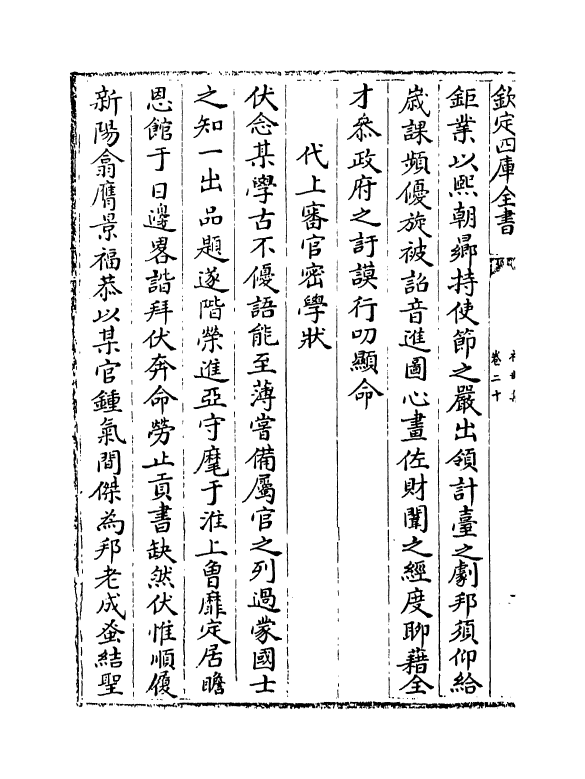 欽定四庫全書
卷二十
鉅業以熙朝曏持使節之嚴出領計臺之劇邦須仰給
嵗課頻優旋被詔音進圖心畫佐財闈之經度聊藉全
才叅政府之訏謨行叨顯命
代上審官密學狀
伏念某學古不優語能至薄嘗備屬官之列過蒙國士
之知一出品題遂階榮進亞守麾于淮上魯靡定居瞻
恩館于日邊畧諧拜伏奔命勞止貢書缺然伏惟順履
新陽翕膺景福恭以某官鍾氣間傑為邦老成蚤結聖